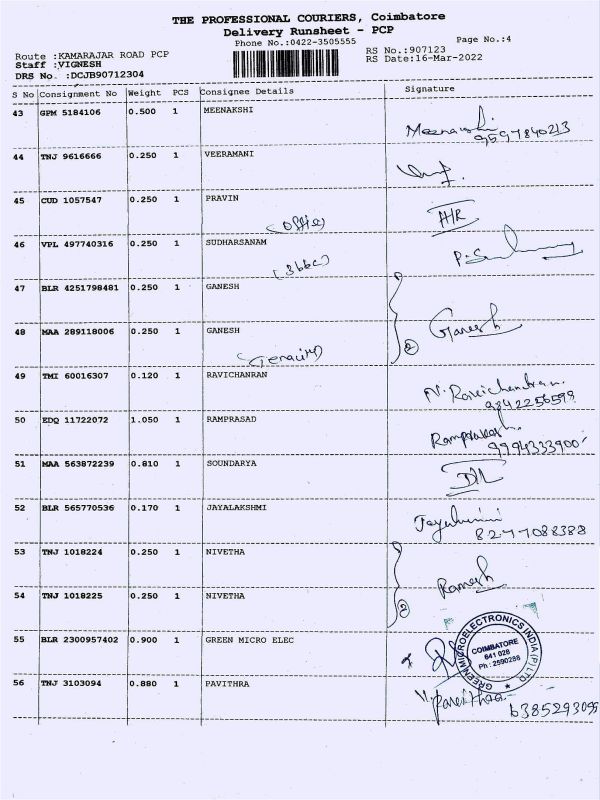 THE PROFESSIONAL COURIERS, Coimbatore
Delivery Runsheet - PCP
Phone No.:0422-3505555
Page No.:4
Route :KAMARAJAR ROAD PCP
RS No.:907123
Staff :VIGNESH
RS Date:16-Mar-2022
DRS No. :DCJB90712304
S No Consignment No Weight PCS Consignee Details Signature
43 GPM 5184106 0.500 1 MEENAKSHI
Meenakshi
9597840213
44 TNJ 9616666 0.250 1 VEERAMANI
45 CUD 1057547 0.250 1 PRAVIN
(Office)
46 VPL 497740316 0.250 1 SUDHARSANAM
47 BLR 4251798481 0.250 1 GANESH
48 MAA 289118006 0.250 1 GANESH
Ganesh
2
49 TMI 60016307 0.120 1 RAVICHANRAN
N. Ravichandran.
9842256599
50 EDQ 11722072 1.050 1 RAMPRASAD
9994333900
51 MAA 563872239 0.810 1 SOUNDARYA
52 BLR 565770536 0.170 1 JAYALAKSHMI
8277088388
53 TNJ 1018224 0.250 1 NIVETHA
Ramesh
54 TNJ 1018225 0.250 1 NIVETHA
2
55 BLR 2300957402 0.900 1 GREEN MICRO ELEC
GREEN MICROELECTRONICS INDIA (P) LTD
COIMBATORE
641 028
Ph : 2590288
56 TNJ 3103094 0.880 1 PAVITHRA
Pavithra
6385293099